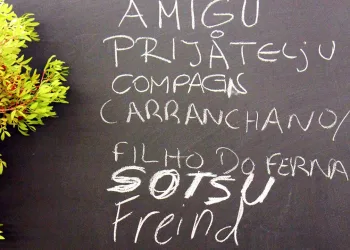 AMIGU
PRIJÅTELJU
COMPAGN
CARRANCHANO/
FILHO DO FERNA
SOTSU
Freind